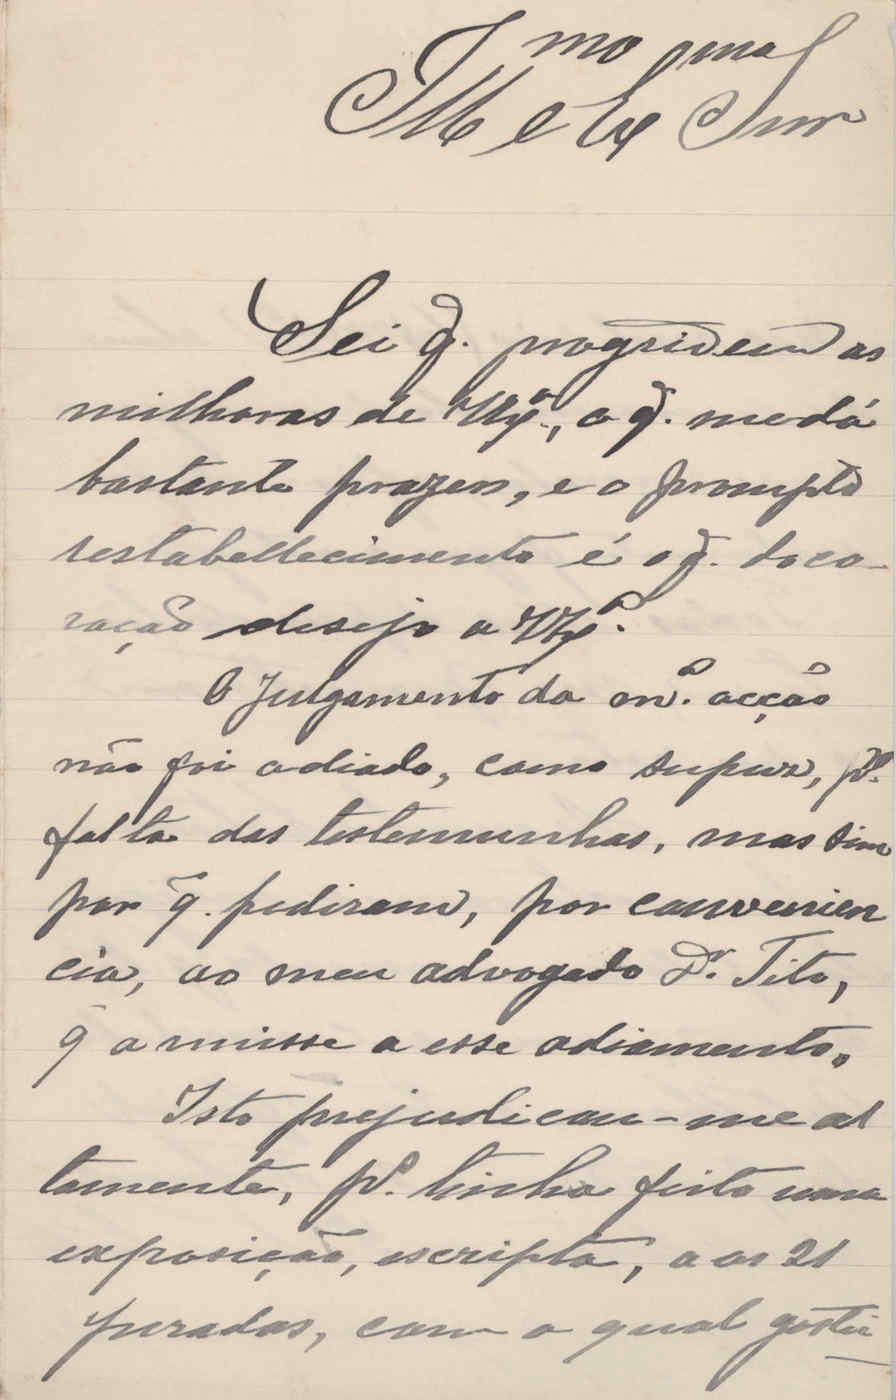 Illmo e Exmo Snr
Sei q̃. progridem as
milhoras de VExª., o q̃. me dá
bastante prazer, e o prompto
restabellecimento é o q̃. do co-
ração desejo a VExª.
O julgamento da mª. acção
não foi adiado, como supuz, pr.
falta das testemunhas, mas sim
por q̃. pediram, por convenien
cia, ao meu advogado Dr. Tito,
q̃ anuisse a esse adiamento.
Isto prejudicou-me al
tamente, pr. tinha feito uma
exposição, escripta, aos 21
jurados, com o qual gastei